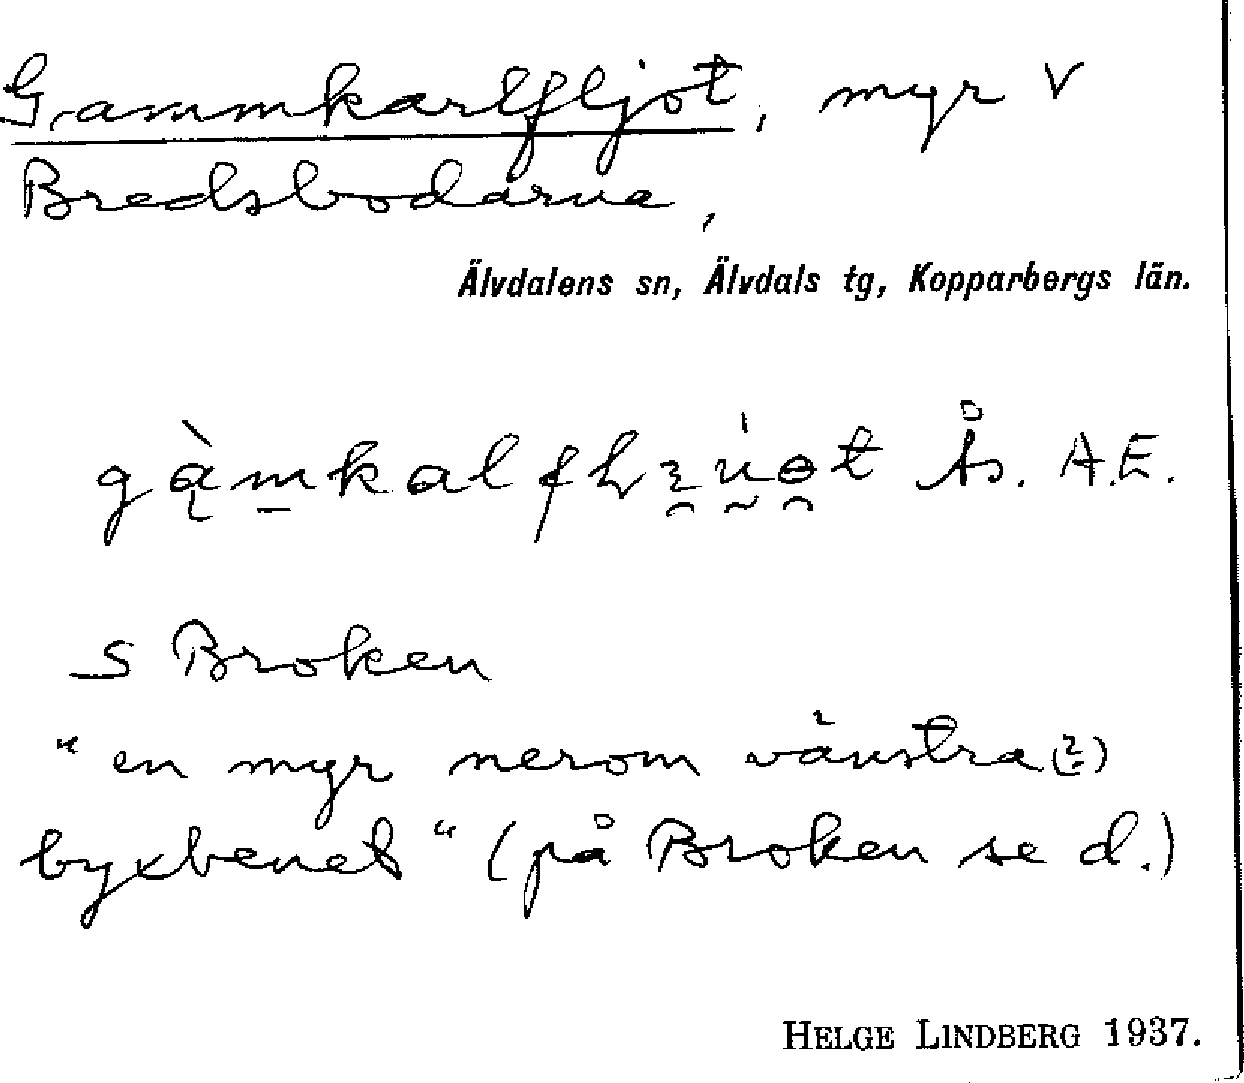 Gammkarlfljot, myr V
Bredsbodarna,
Älvdalens sn, Älvdals tg, Kopparbergs län.
Ås. A.E.
S Broken
"en myr nerom vänstra (?)
byxbenet" (på Broken se d.)
HELGE LINDBERG 1937.